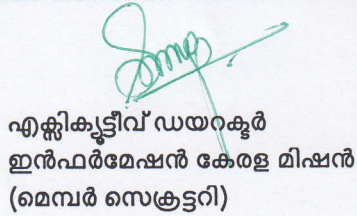 എക്സിക്യൂട്ടീവ് ഡയറക്ടർ
ഇൻഫർമേഷൻ കേരള മിഷൻ
(മെമ്പർ സെക്രട്ടറി)